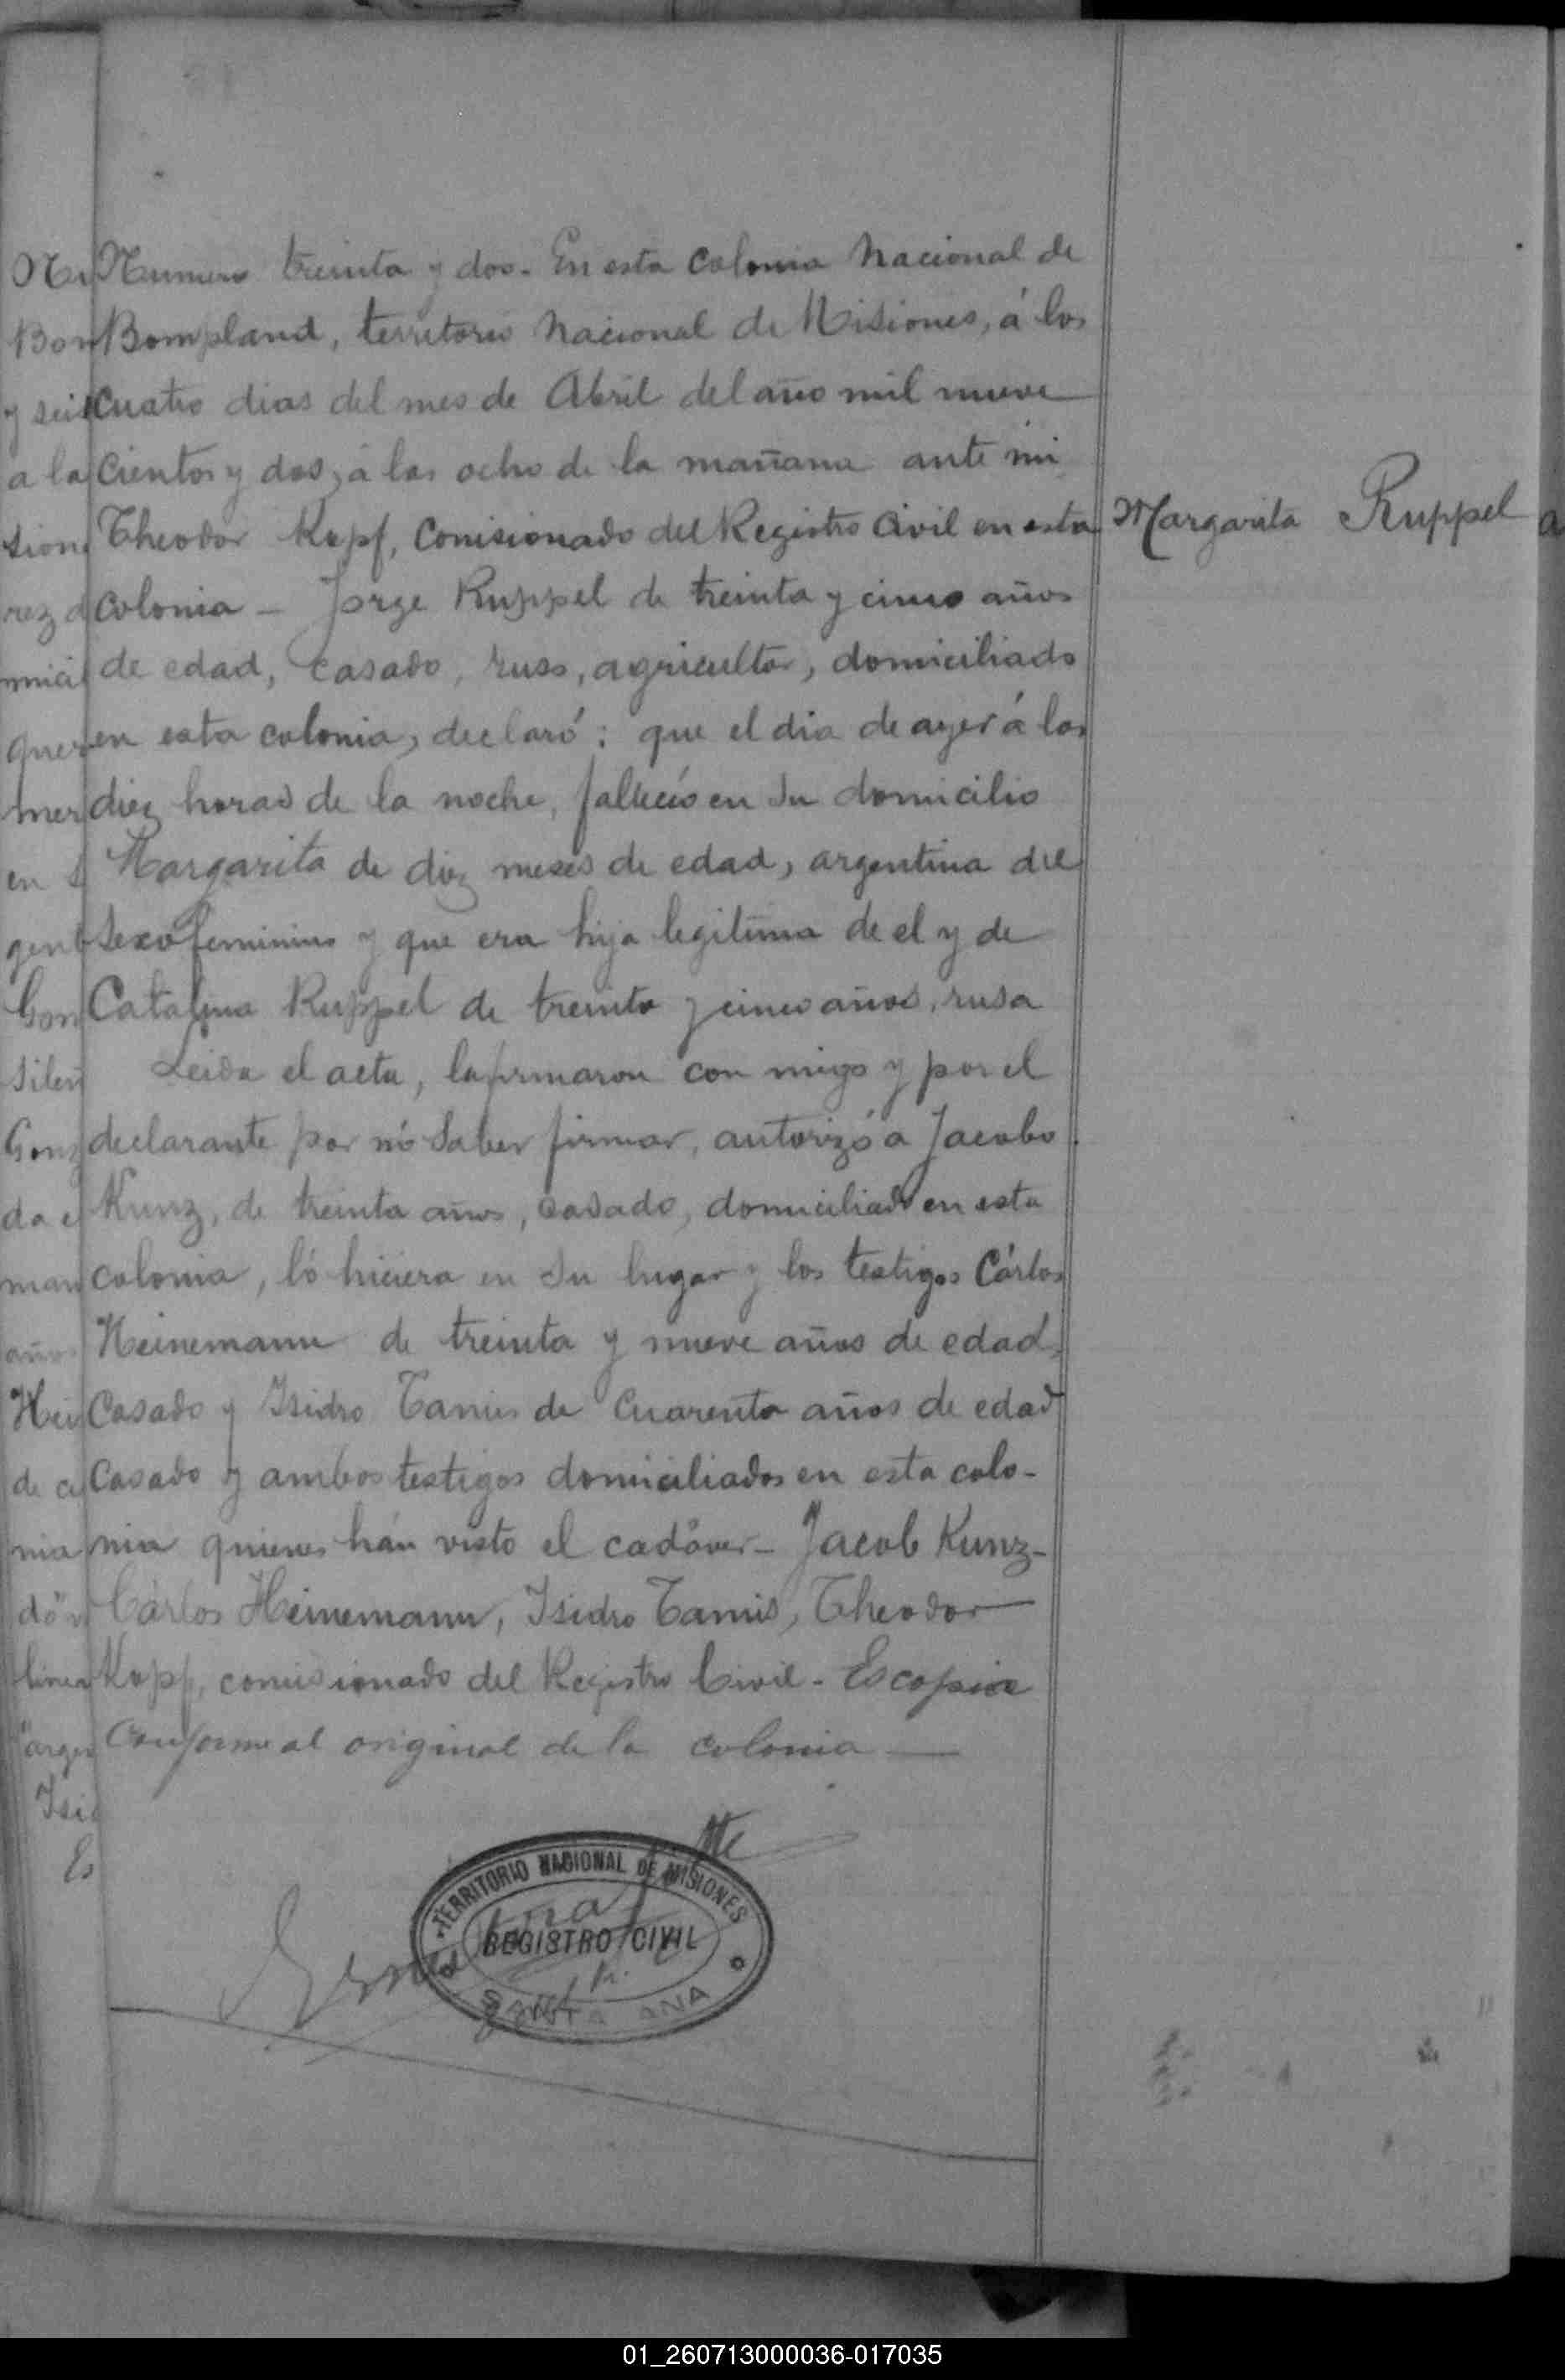 Numero treinta y dos. En esta Colonia Nacional de
Bompland, territorio Nacional de Misiones, á los
cuatro dias del mes de Abril del año mil nueve
cientos y dos, á las ocho de la mañana ante mi
Theodor Kopf, Comisionado del Registro Civil en esta
colonia — Jorge Ruppel de treinta y cinco años
de edad, casado, ruso, agricultor, domiciliado
en esta colonia, declaró: que el dia de ayer á las
diez horas de la noche, falleció en su domicilio
Margarita de diez meses de edad, argentina del
sexo feminino y que era hija legitima de el y de
Catalina Ruppel de treinta y cinco años, rusa
Leida el acta, la firmaron con migo y por el
declarante por nó saber firmar, autorizó a Jacobo
Kunz, de treinta años, casado, domiciliado en esta
colonia, ló hiciera en su lugar y los testigos Cárlos
Heinemann de treinta y nueve años de edad,
Casado y Isidro Tamis de Cuarenta años de edad
Casado y ambos testigos domiciliados en esta colo-
nia quienes hán visto el cadáver — Jacob Kunz —
Cárlos Heinemann, Isidro Tamis, Theodor
Kopf, comisionado del Registro Civil - Es copia
Conforme al original de la colonia —
Margarita Ruppel
TERRITORIO NACIONAL DE MISIONES
REGISTRO CIVIL
SANTA ANA
01_260713000036-017035